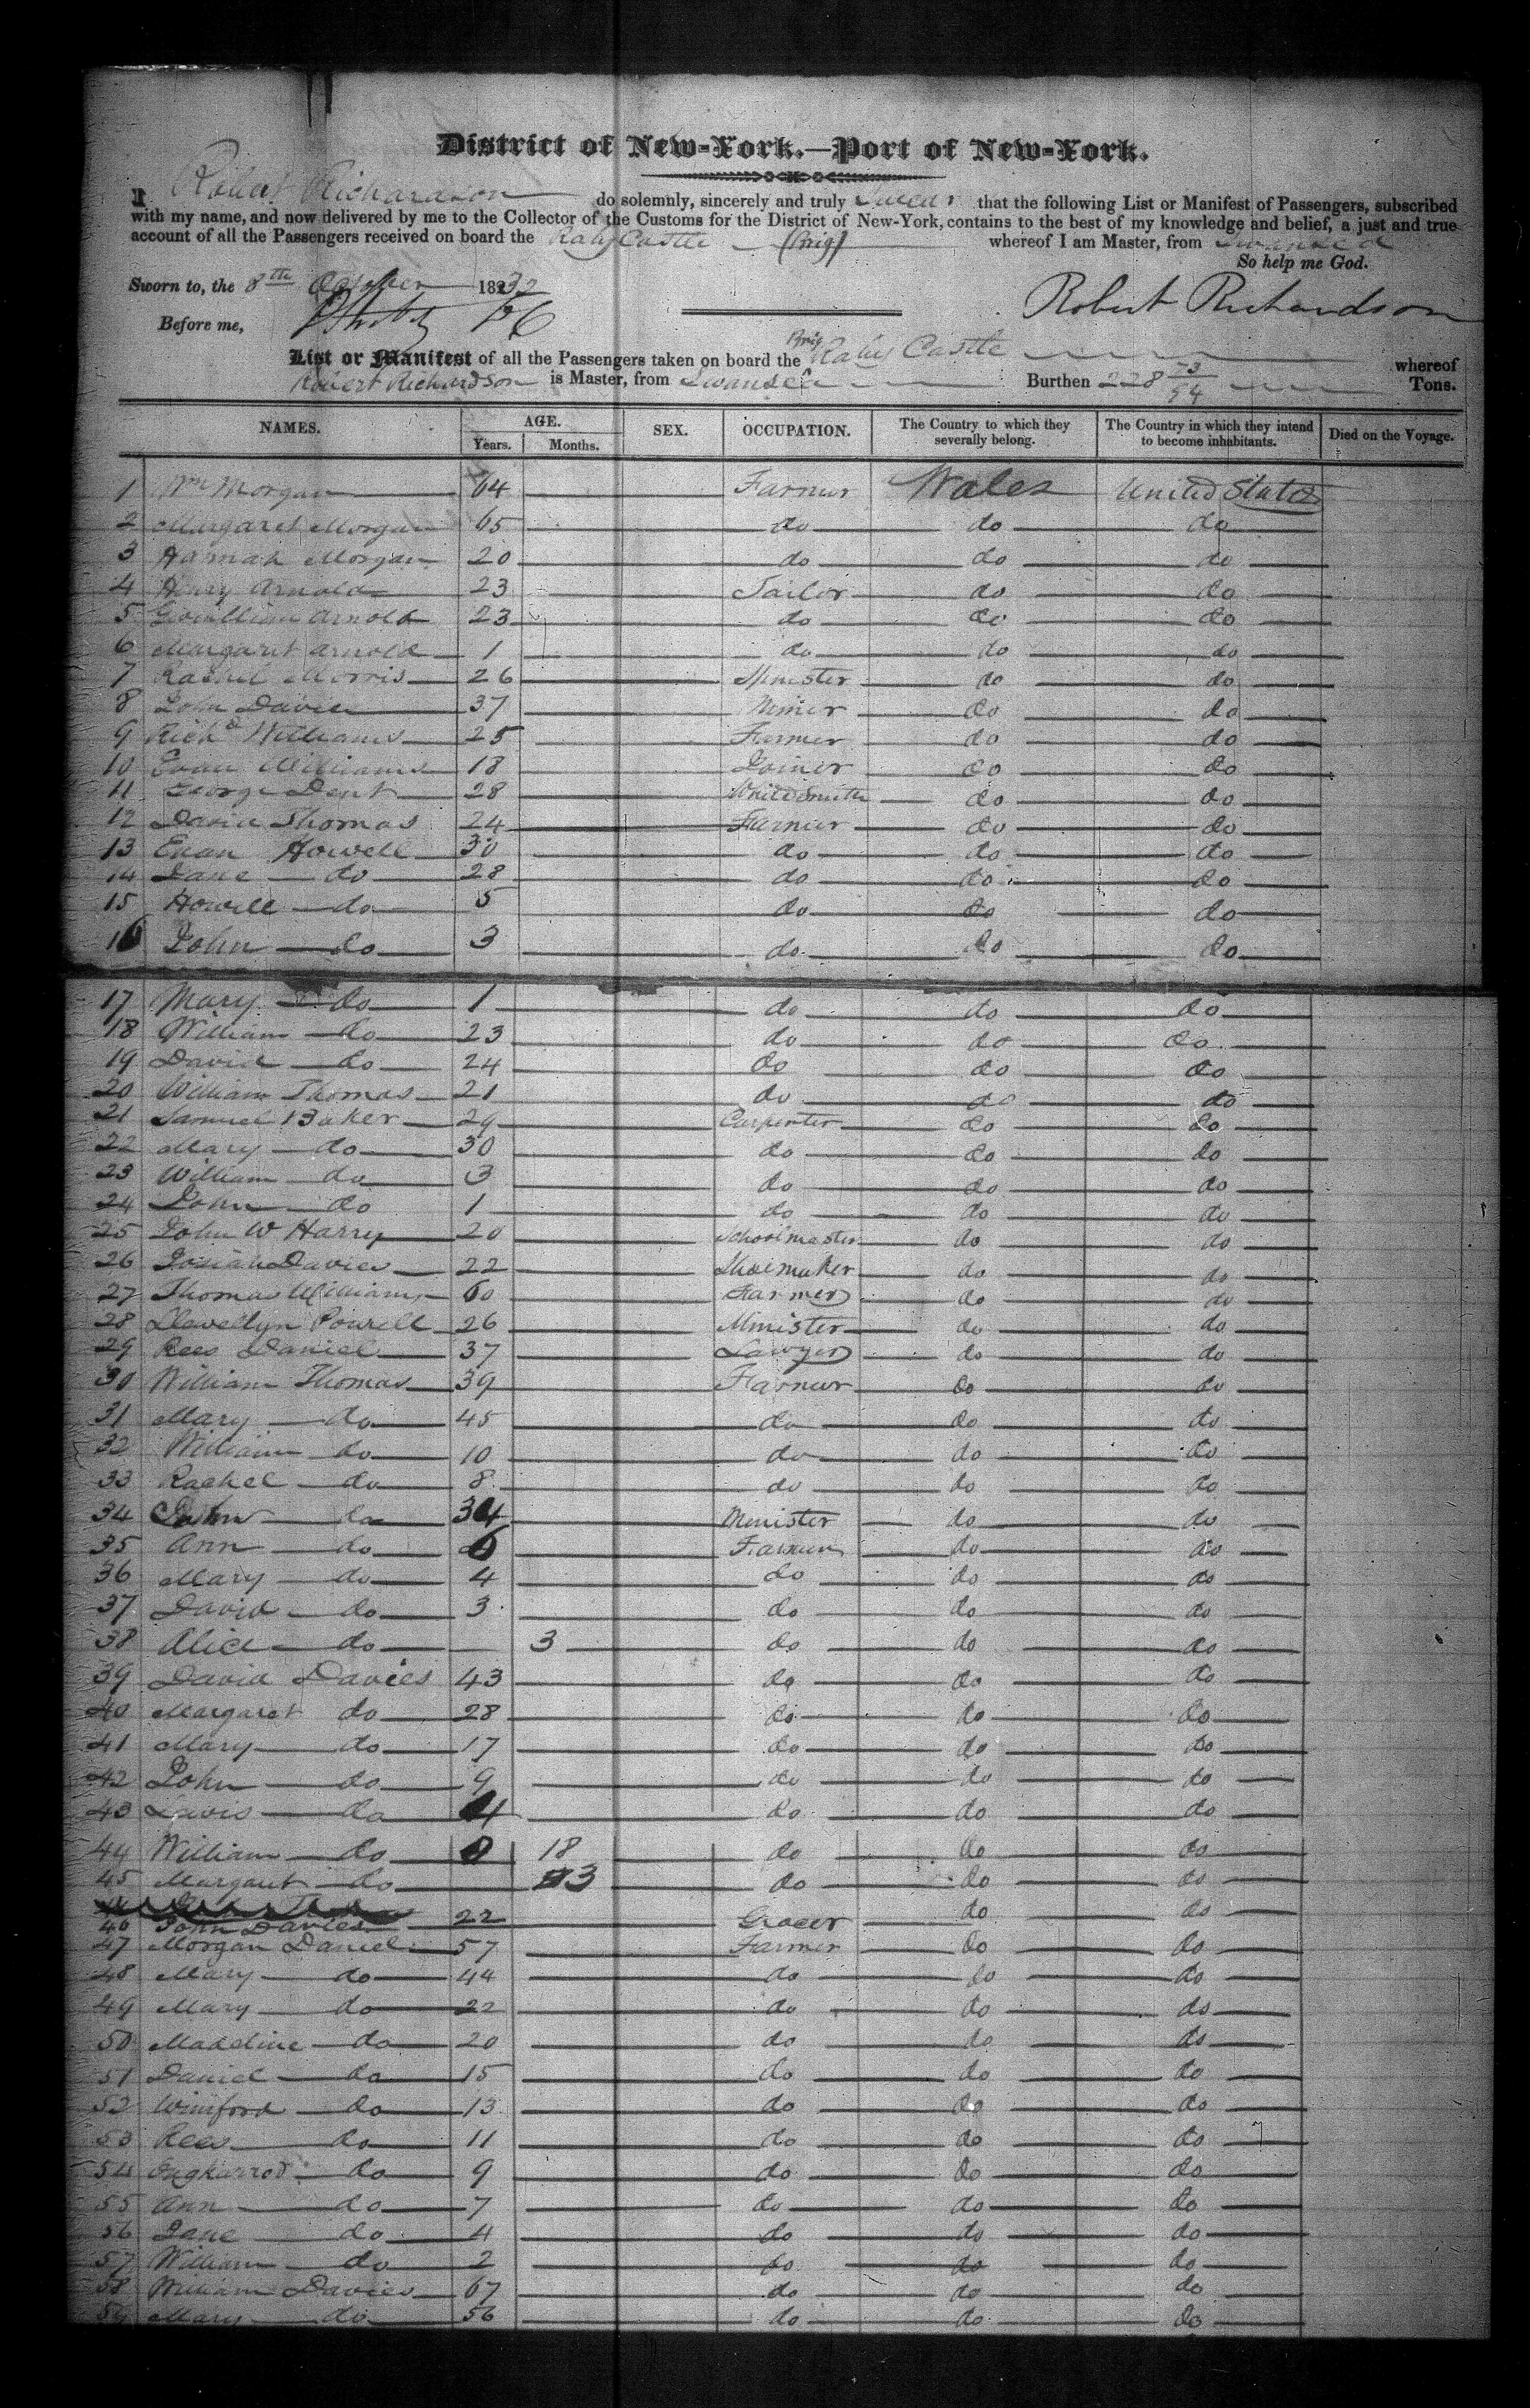 District of New-York.—Port of New-York.
I Robert Richardson do solemnly, sincerely and truly swear that the following List or Manifest of Passengers, subscribed
with my name, and now delivered by me to the Collector of the Customs for the District of New-York, contains to the best of my knowledge and belief, a just and true
account of all the Passengers received on board the Raby Castle (Brig) whereof I am Master, from Swansea
So help me God.
Sworn to, the 8th October 1832
Robert Richardson
Before me,
List or Manifest of all the Passengers taken on board the Brig Raby Castle whereof
Robert Richardson is Master, from Swansea Burthen 228 73/94 Tons.
NAMES. AGE. Years. Months. SEX. OCCUPATION. The Country to which they severally belong. The Country in which they intend to become inhabitants. Died on the Voyage.
1 Wm Morgan 64 Farmer Wales United States
2 Margaret Morgan 65 do do do
3 Hannah Morgan 20 do do do
4 Henry Arnold 23 Tailor do do
5 Gwenllian Arnold 23 do do do
6 Margaret Arnold 1 do do do
7 Rachel Morris 26 Minister do do
8 John Davies 37 Miner do do
9 Richd Williams 25 Farmer do do
10 Evan Williams 18 Joiner do do
11 George Dent 28 Whitesmith do do
12 David Thomas 24 Farmer do do
13 Evan Howell 30 do do do
14 Jane do 28 do do do
15 Howell do 5 do do do
16 John do 3 do do do
17 Mary do 1 do do do
18 William do 23 do do do
19 David do 24 do do do
20 William Thomas 21 do do do
21 Samuel Baker 29 Carpenter do do
22 Mary do 30 do do do
23 William do 3 do do do
24 John do 1 do do do
25 John W Harry 20 Schoolmaster do do
26 Josiah Davies 22 Shoemaker do do
27 Thomas Williams 60 Farmer do do
28 Llewellyn Powell 26 Minister do do
29 Rees Daniel 37 Lawyer do do
30 William Thomas 39 Farmer do do
31 Mary do 45 do do do
32 William do 10 do do do
33 Rachel do 8 do do do
34 John do 34 Minister do do
35 Ann do 6 Farmer do do
36 Mary do 4 do do do
37 David do 3 do do do
38 Alice do 3 do do do
39 David Davies 43 do do do
40 Margaret do 28 do do do
41 Mary do 17 do do do
42 John do 9 do do do
43 Lewis do 4 do do do
44 William do 18 do do do
45 Margaret do 3 do do do
46 John Davies 22 Grocer do do
47 Morgan Daniel 57 Farmer do do
48 Mary do 44 do do do
49 Mary do 22 do do do
50 Madeline do 20 do do do
51 Daniel do 15 do do do
52 Winiford do 13 do do do
53 Rees do 11 do do do
54 do 9 do do do
55 Ann do 7 do do do
56 Jane do 4 do do do
57 William do 2 do do do
58 William Davies 67 do do do
59 Mary do 56 do do do